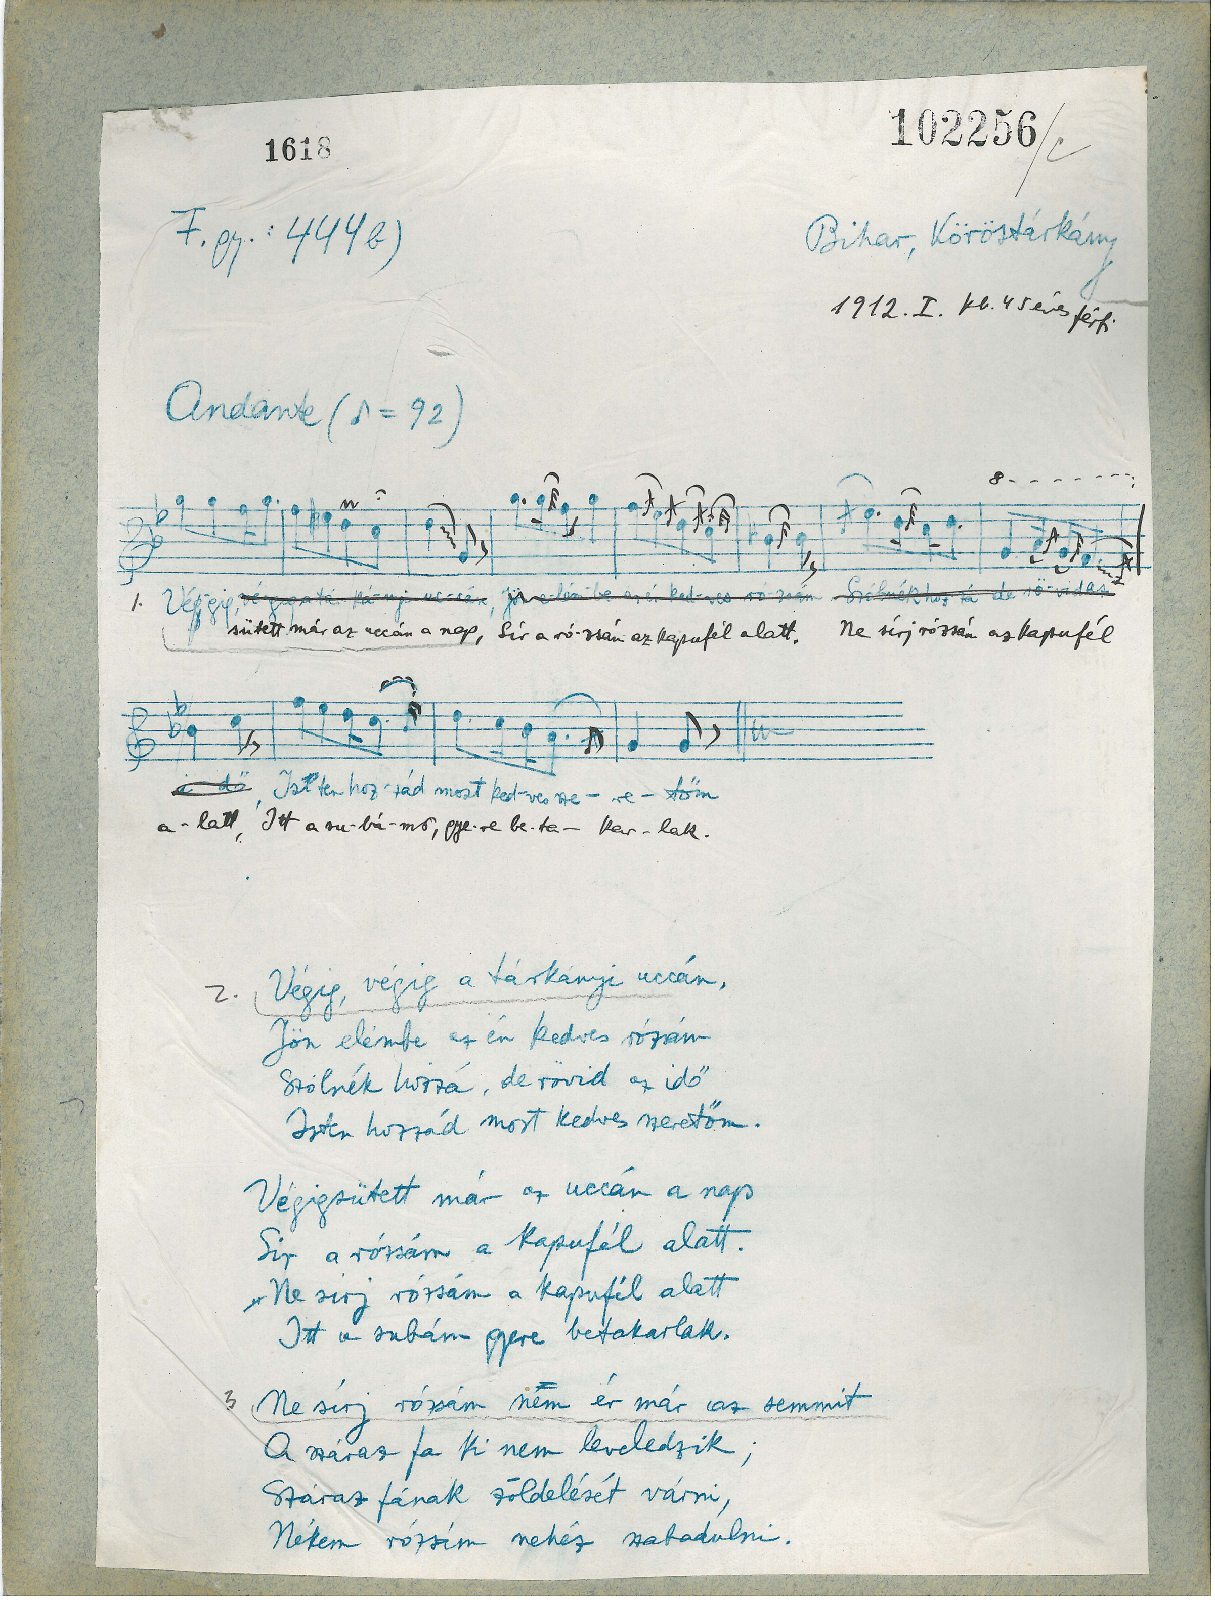 1618
102256/c
F. gy.: 444b)
Bihar, Köröstárkány
1912. I. kb. 45 éves férfi
Andante (♪ = 92)
8
1. Végig, végig a tá- ká-nyi uc-cán, Jön e-lém-be az én ked-ves ró-zsám Szólnék hoz-zá de rö-vid az
sütett már az uccán a nap, Sír a ró-zsám az kapufél alatt. Ne sírj rózsám az kapufél
i-dő, Isten hoz-zád most ked-ves sze-re-tőm
a-latt, Itt a su-bá-mo, gye-re be-ta-kar-lak.
2. Végig, végig a tárkányi uccán,
Jön elémbe az én kedves rózsám
Szólnék hozzá, de rövid az idő
Isten hozzád most kedves szeretőm.
Végigsütett már az uccán a nap
Sír a rózsám a kapufél alatt.
Ne sírj rózsám a kapufél alatt
Itt a subám gyere betakarlak.
3 Ne sírj rózsám nem ér már az semmit
A száraz fa ki nem leveledzik;
Száraz fának zöldelését várni,
Nékem rózsám nehéz szabadulni.